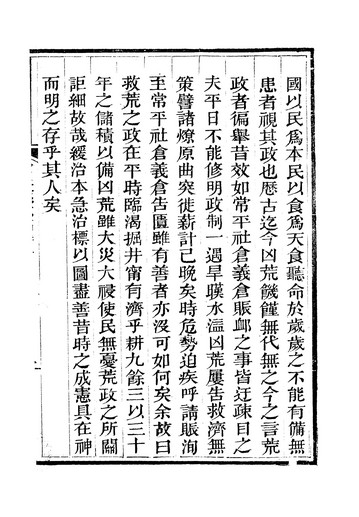 國以民爲本民以食爲天食聽命於歲歲之不能有備無
患者視其政也歷古迄今凶荒饑饉無代無之今之言荒
政者徧舉昔效如常平社倉義倉賑卹之事皆迂疎目之
夫平日不能修明政制一遇旱暵水溢凶荒屢告救濟無
策譬諸燎原曲突徙薪計已晚矣時危勢迫疾呼請賑洵
至常平社倉義倉告匱雖有善者亦沒可如何矣余故曰
救荒之政在平時臨渴掘井甯有濟乎耕九餘三以三十
年之儲積以備凶荒雖大災大祲使民無憂荒政之所關
詎細故哉緩治本急治標以圖盡善昔時之成憲具在神
而明之存乎其人矣